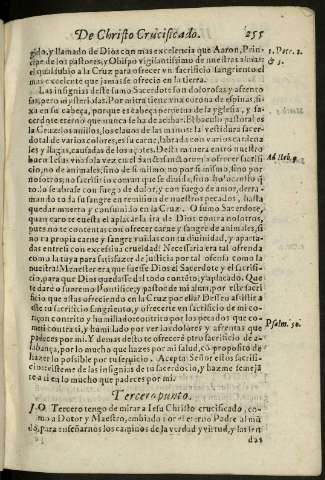 De Christo Crucificado. 255
gido, y llamado de Dios con mas excelencia que Aaron, Prin
cipe de los pastores, y Obispo vigilantissimo de nuestras almas:
el qual subio a la Cruz para ofrecer vn sacrificio sangriento el
mas excelente que jamas se ofrecio en la tierra.
Las insignias deste sumo Sacerdote son dolorosas y afrento
sas, pero misteriosas. Por mitra tiene vna corona de espinas, fi
xa en su cabeça, porque es cabeça eterna de la yglesia, y sa-
cerdote eterno que nunca se ha de acabar. El baculo pastoral es
la Cruz, los anillos, los clauos de las manos: la vestidura sacer-
dotal de varios colores, es su carne, labrada con varios cardena
les y llagas, causadas de los açotes. Desta manera entrò nuestro
buen Iesus vna sola vez en el Sanctasanctorum a ofrecer sacrifi
cio, no de animales, sino de si mismo: no por si mismo, sino por
nosotros: no sacrificio en que se diuida, sino holocausto
to lo se abrase con fuego de dolor, y con fuego de amor, derra-
mando toda su sangre en remission de nuestros pecados, hasta
quedar muerto y consumido en la Cruz. O sumo Sacerdote,
quan caro te cuesta el aplacar la ira de Dios contra nosotros,
pues no te contentas con ofrecer carne y sangre de animales, si
no tu propia carne y sangre vnidas con tu diuinidad, y aparta-
das entre si con excessiua crueldad! Necessaria era tal ofrenda
como la tuya para satisfazer de justicia por tal ofensa como la
nuestra! Menester era que fuesse Dios el Sacerdote y el sacrifi-
cio, para que Dios quedasse del todo contento, y aplacado. Que
te darè o supremo Pontifice, y pastor de mi alma, por este sacri
ficio que estas ofreciendo en la Cruz por ella? Desseo assistir a
este tu sacrificio sangriento, y ofrecerte vn sacrificio de mi co-
raçon contrito y humillado: contrito por los pecados que co-
meti contra ti, y humillado por ver los dolores y afrentas que
padeces por mi. Y demas desto te ofrecerè otro sacrificio de a-
labança, por lo mucho que hazes por mi salud, cõ proposito de
hazer lo possible por tu seruicio. Acepta Señor estos sacrifi-
cios en las insignias de tu sacerdocio, y hazme semeja
te a ti en lo mucho que padeces por mi.
Tercero punto.
LO Tercero tengo de mirar a Iesu Christo crucificado, co-
mo a Dotor y Maestro, embiado por el eterno Padre al mũ
do, para enseñarnos los caminos de la verdad y virtud, y las sen
das
1. Petr. 2.
& 5.
Ad Heb. 9.
Psalm. 50.